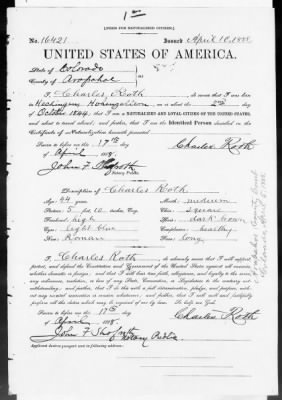 [FORM FOR NATURALIZED CITIZEN.]
No. 16421 Issued April 18, 1888
UNITED STATES OF AMERICA.
State of Colorado
County of Arapahoe } ss.
I, Charles Roth, do swear that I was born
in Hechingen Hohenzollern on or about the
October 1844; that I am a NATURALIZED AND LOYAL CITIZEN OF THE UNITED STATES,
and about to travel abroad; and further, that I am the Identical Person described in the
Certificate of Naturalization herewith presented
Sworn to before me this 17th
day of April 188
Charles Roth
John F. Shafroth
Notary Public.
Description of Charles Roth
Age: 44 years Mouth: medium
Stature: 5 feet, 10 inches, Eng. Chin: square
Forehead: high Hair: dark brown
Eyes: light blue Complexion: healthy
Nose: Roman Face: long
I, Charles Roth, do solemnly swear that I will support,
protect, and defend the Constitution and Government of the United States against all enemies,
whether domestic or foreign; and that I will bear true faith, allegiance, and loyalty to the same,
any ordinance, resolution, or law of any State, Convention, or Legislature to the contrary not-
withstanding; and further, that I do this with a full determination, pledge, and purpose, with-
out any mental reservation or evasion whatsoever; and further, that I will well and faithfully
perform all the duties which may be required of me by law. So help me God.
Sworn to before me this 17th
day of April 188
Charles Roth
John F. Shafroth
Notary Public
Applicant desires passport sent to following address: